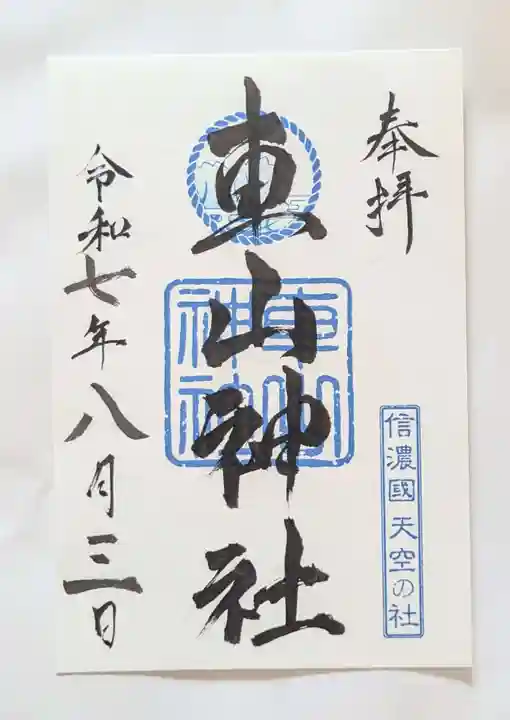 奉拝
信濃國 天空の社
車山神社
車山
神社
令和七年八月三日